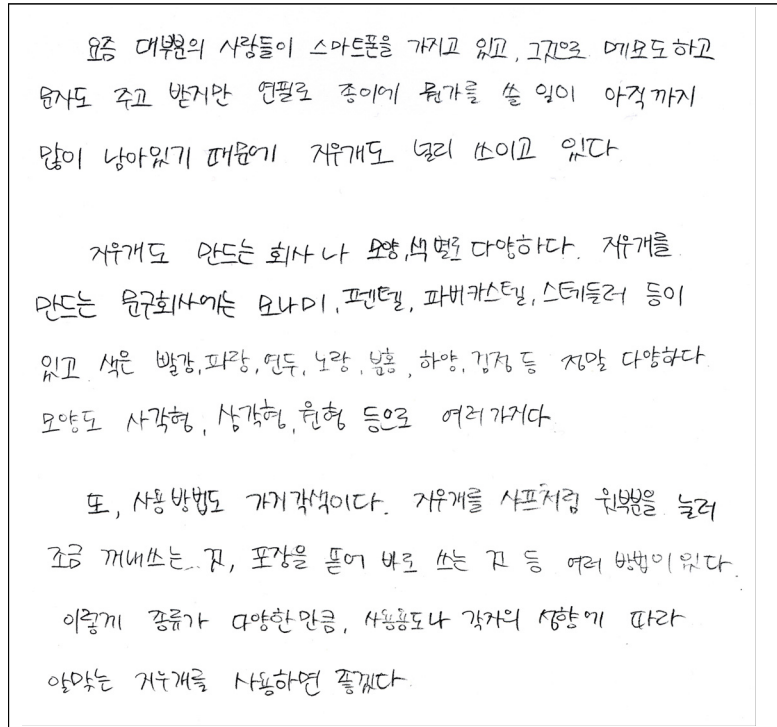 요즘 대부분의 사람들이 스마트폰을 가지고 있고, 그것으로 메모도 하고
문자도 주고 받지만 연필로 종이에 뭔가를 쓸 일이 아직까지
많이 남아있기 때문에 지우개도 널리 쓰이고 있다
지우개도 만드는 회사나 모양, 색 별로 다양하다. 지우개를
만드는 문구회사에는 모나미, 펜텔, 파버카스텔, 스테들러 등이
있고 색은 빨강, 파랑, 연두, 노랑, 분홍, 하양, 검정 등 정말 다양하다
모양도 사각형, 삼각형, 원형 등으로 여러가지다
또, 사용 방법도 가지각색이다. 지우개를 샤프처럼 윗부분을 눌러
조금 꺼내쓰는 것, 포장을 뜯어 바로 쓰는 것 등 여러 방법이 있다.
이렇게 종류가 다양한만큼, 사용용도나 각자의 성향에 따라
알맞는 지우개를 사용하면 좋겠다